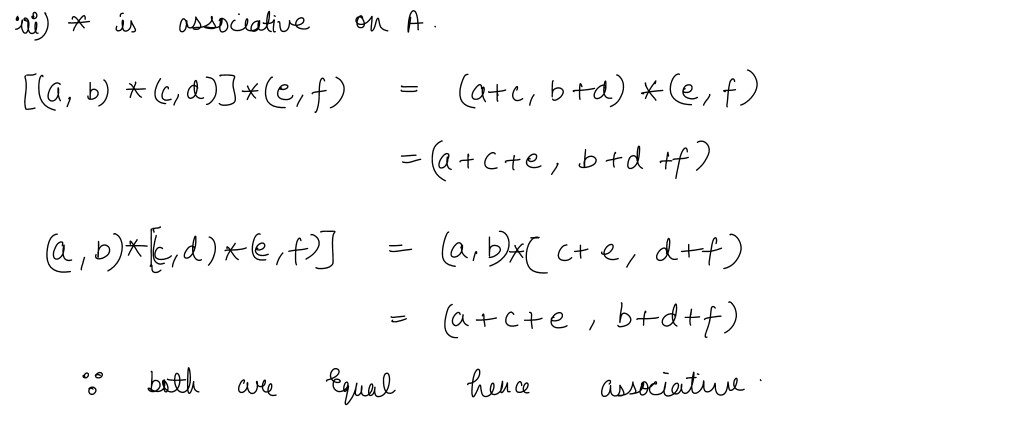 ii) * is associative on A.
[(a, b) *(c,d)]*(e,f) = (a+c, b+d) *(e,f)
= (a+c+e, b+d+f)
(a,b)*[c,d)*(e,f)] = (a,b)*( c+e, d+f)
= (a+c+e , b+d+f)
∵ both are Equal hence associative.